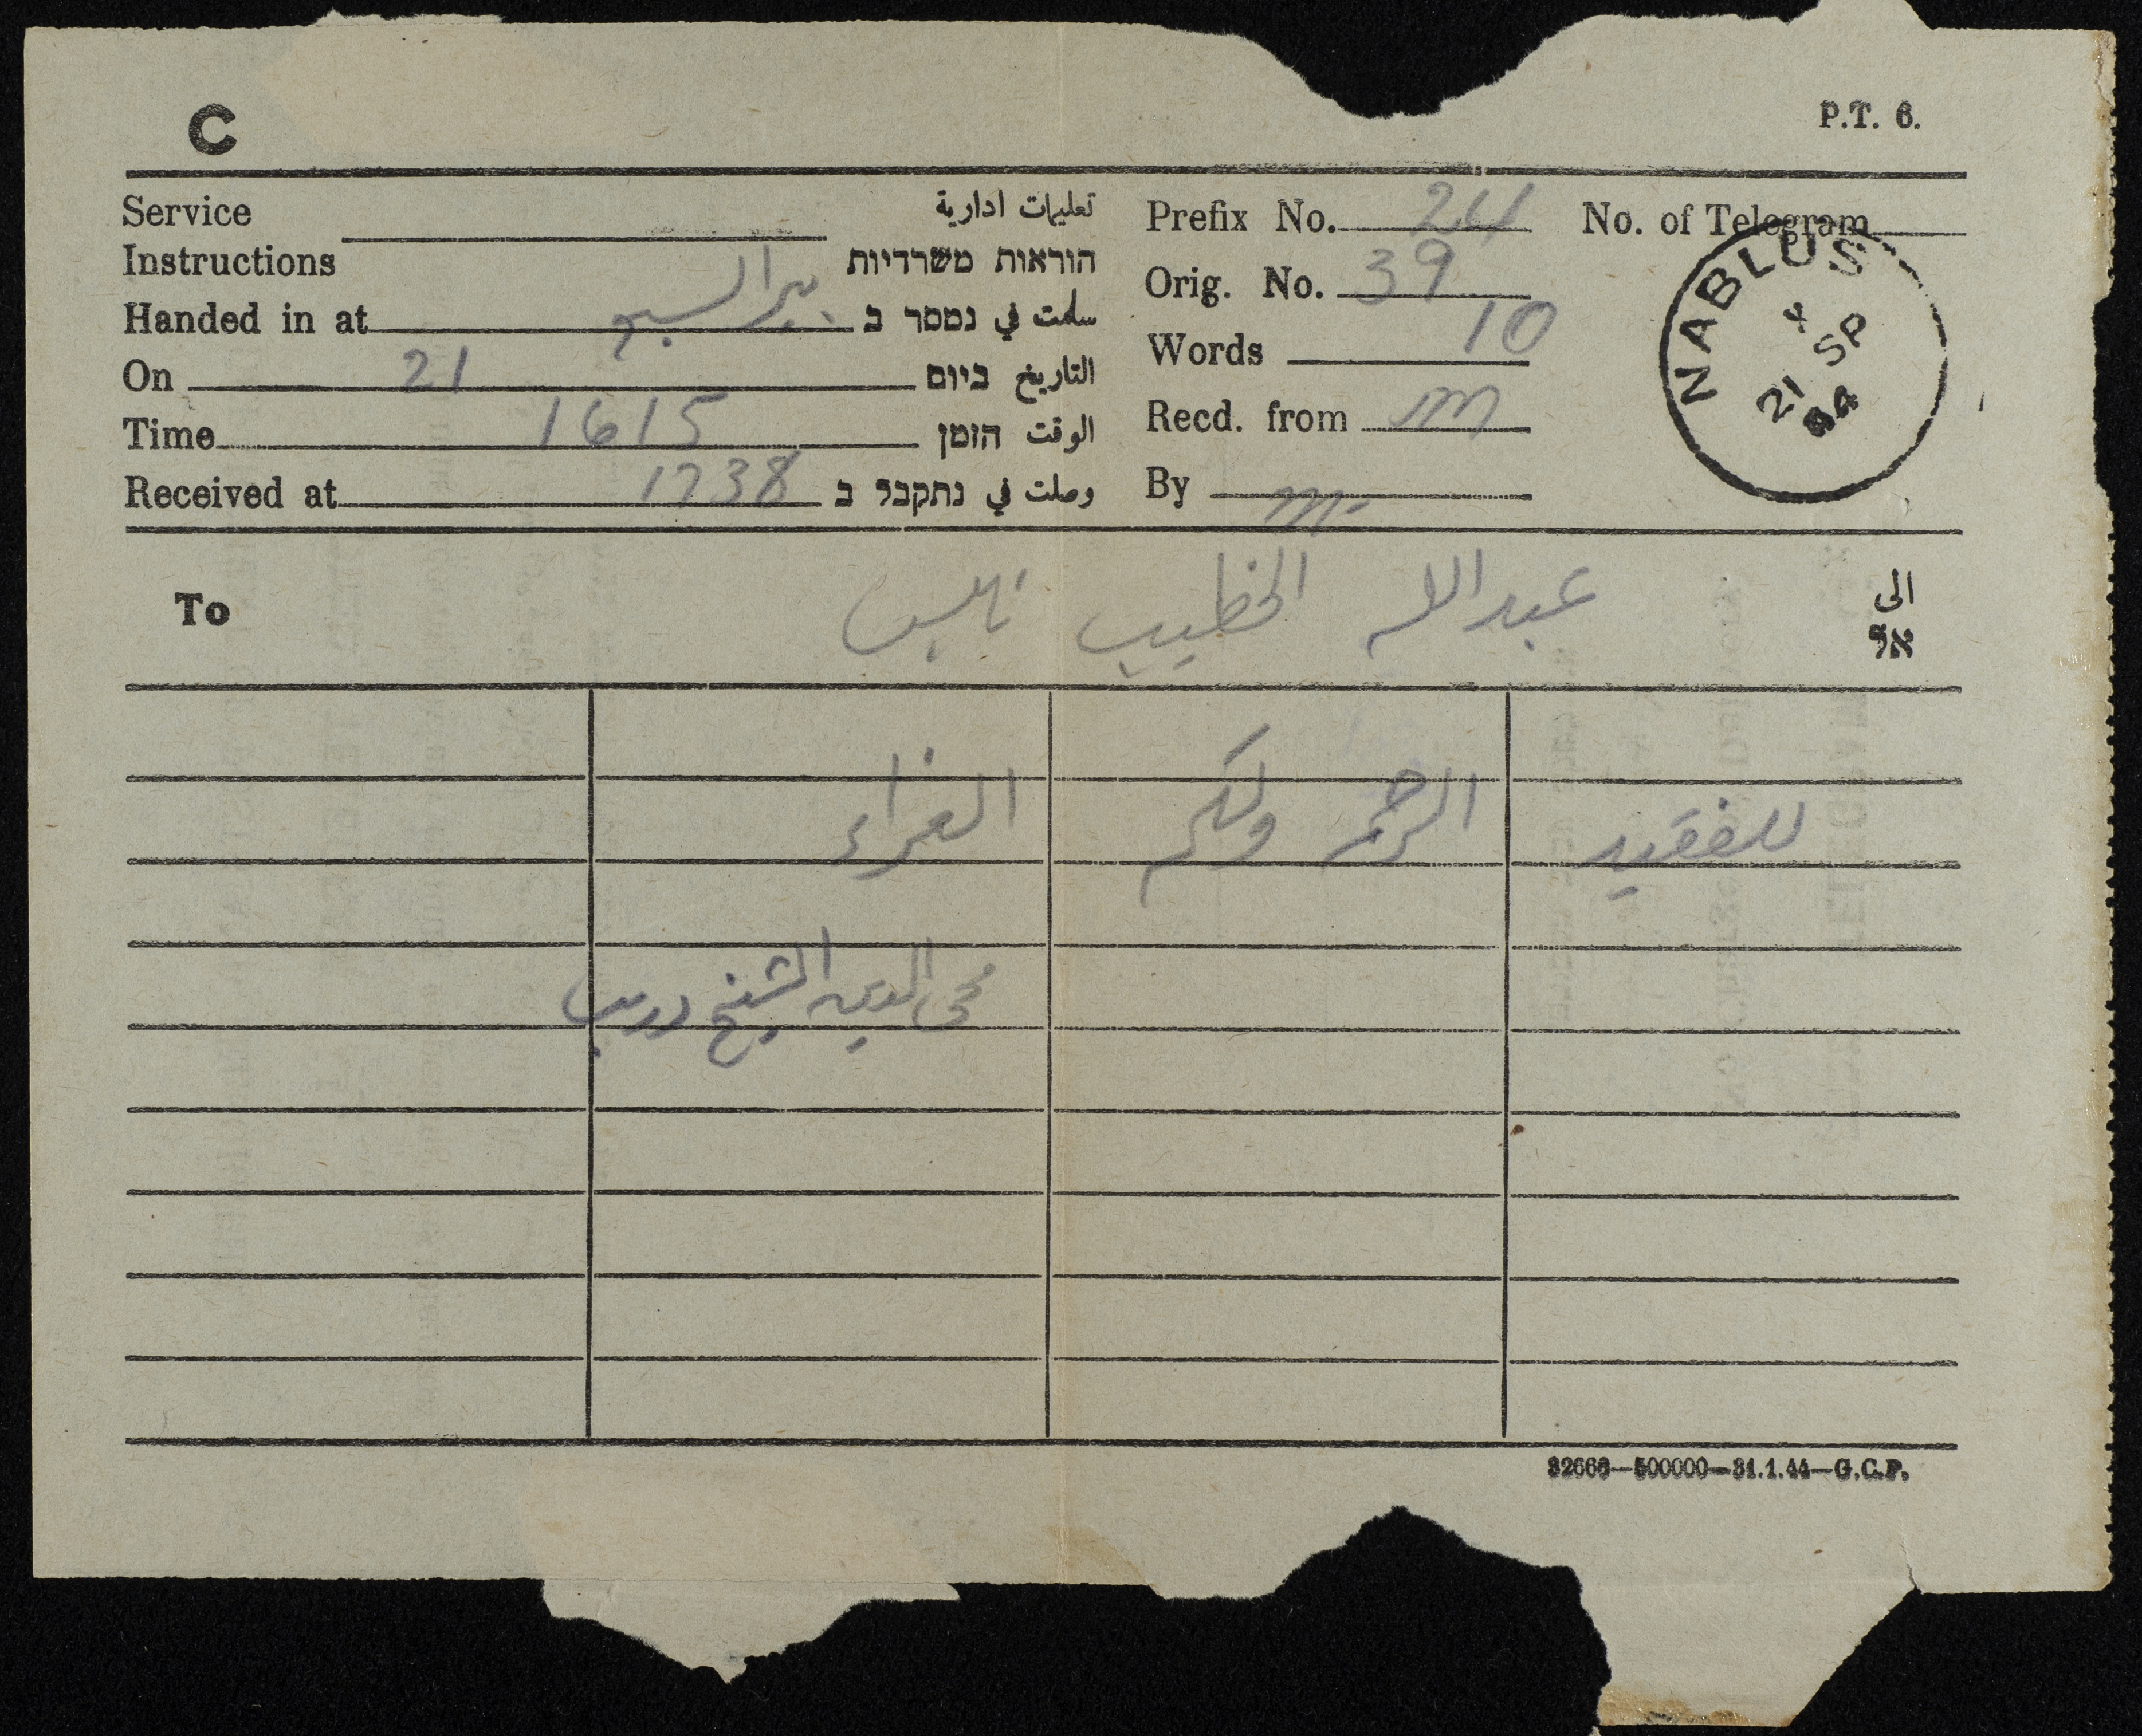 C
P.T. 6.
Service تعليمات ادارية
Instructions הוראות משרדיות
Handed in at بير السبع سلمت في נמסר ב
On 21 التاريخ ביום
Time 1615 الوقت הזמן
Received at 1738 وصلت في נתקבל ב
Prefix No. 24 No. of Telegram
Orig. No. 39
Words 10
Recd. from m
By m
NABLUS
21 SP
44
To عبدالله الخطيب نابلس الى
אל
للفقيد الرحمة ولكم العزاء
محي الدين الشيخ دريب
32666—500000—31.1.44—G.C.P.